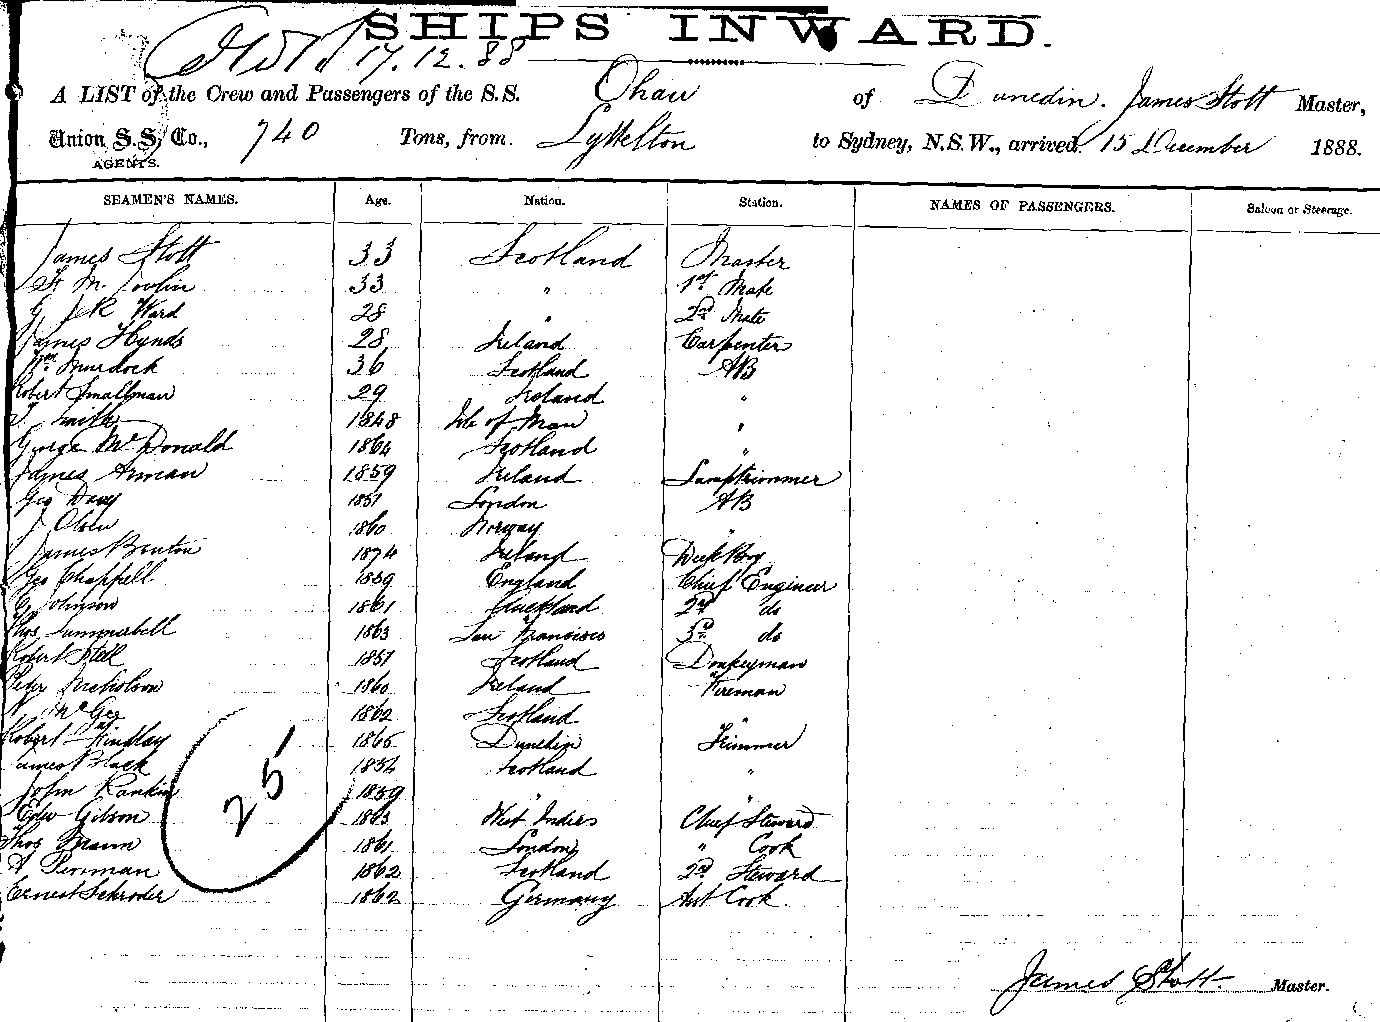 SHIPS INWARD.
17.12.88
A LIST of the Crew and Passengers of the S.S. Ohau of Dunedin. James Stott Master,
Union S.S. Co., 740 Tons, from Lyttelton to Sydney, N.S.W., arrived 15 December 1888.
AGENTS.
SEAMEN'S NAMES. Age. Nation. Station. NAMES OF PASSENGERS. Saloon or Steerage.
James Stott 33 Scotland Master
M. 33 " 1st Mate
G Ward 28 " 2nd Mate
James Hynds 28 Ireland Carpenter
Wm Murdock 36 Scotland AB
Robert Smallman 29 Ireland "
Smith 1848 Isle of Man "
George McDonald 1864 Scotland "
James Arman 1859 Ireland Lamptrimmer
Geo Davy 1857 London AB
J Olsen 1860 Norway "
James Benton 1874 Ireland Deck Boy
Geo Chappell 1859 England Chief Engineer
Johnson 1861 Auckland 2nd do
Thos Summerbell 1863 San Francisco 3rd do
Robert 1857 Scotland Donkeyman
Peter Nicholson 1860 Ireland Fireman
McGee 1862 Scotland "
Robert Findlay 1865 Dunedin Trimmer
James Black 1854 Scotland "
John Rankin 1859 " "
Edw Gibson 1863 West Indies Chief Steward
Thos Mann 1861 London " Cook
A Penman 1862 Scotland 2nd Steward
Ernest Schroder 1862 Germany Asst Cook
25
James Stott Master.